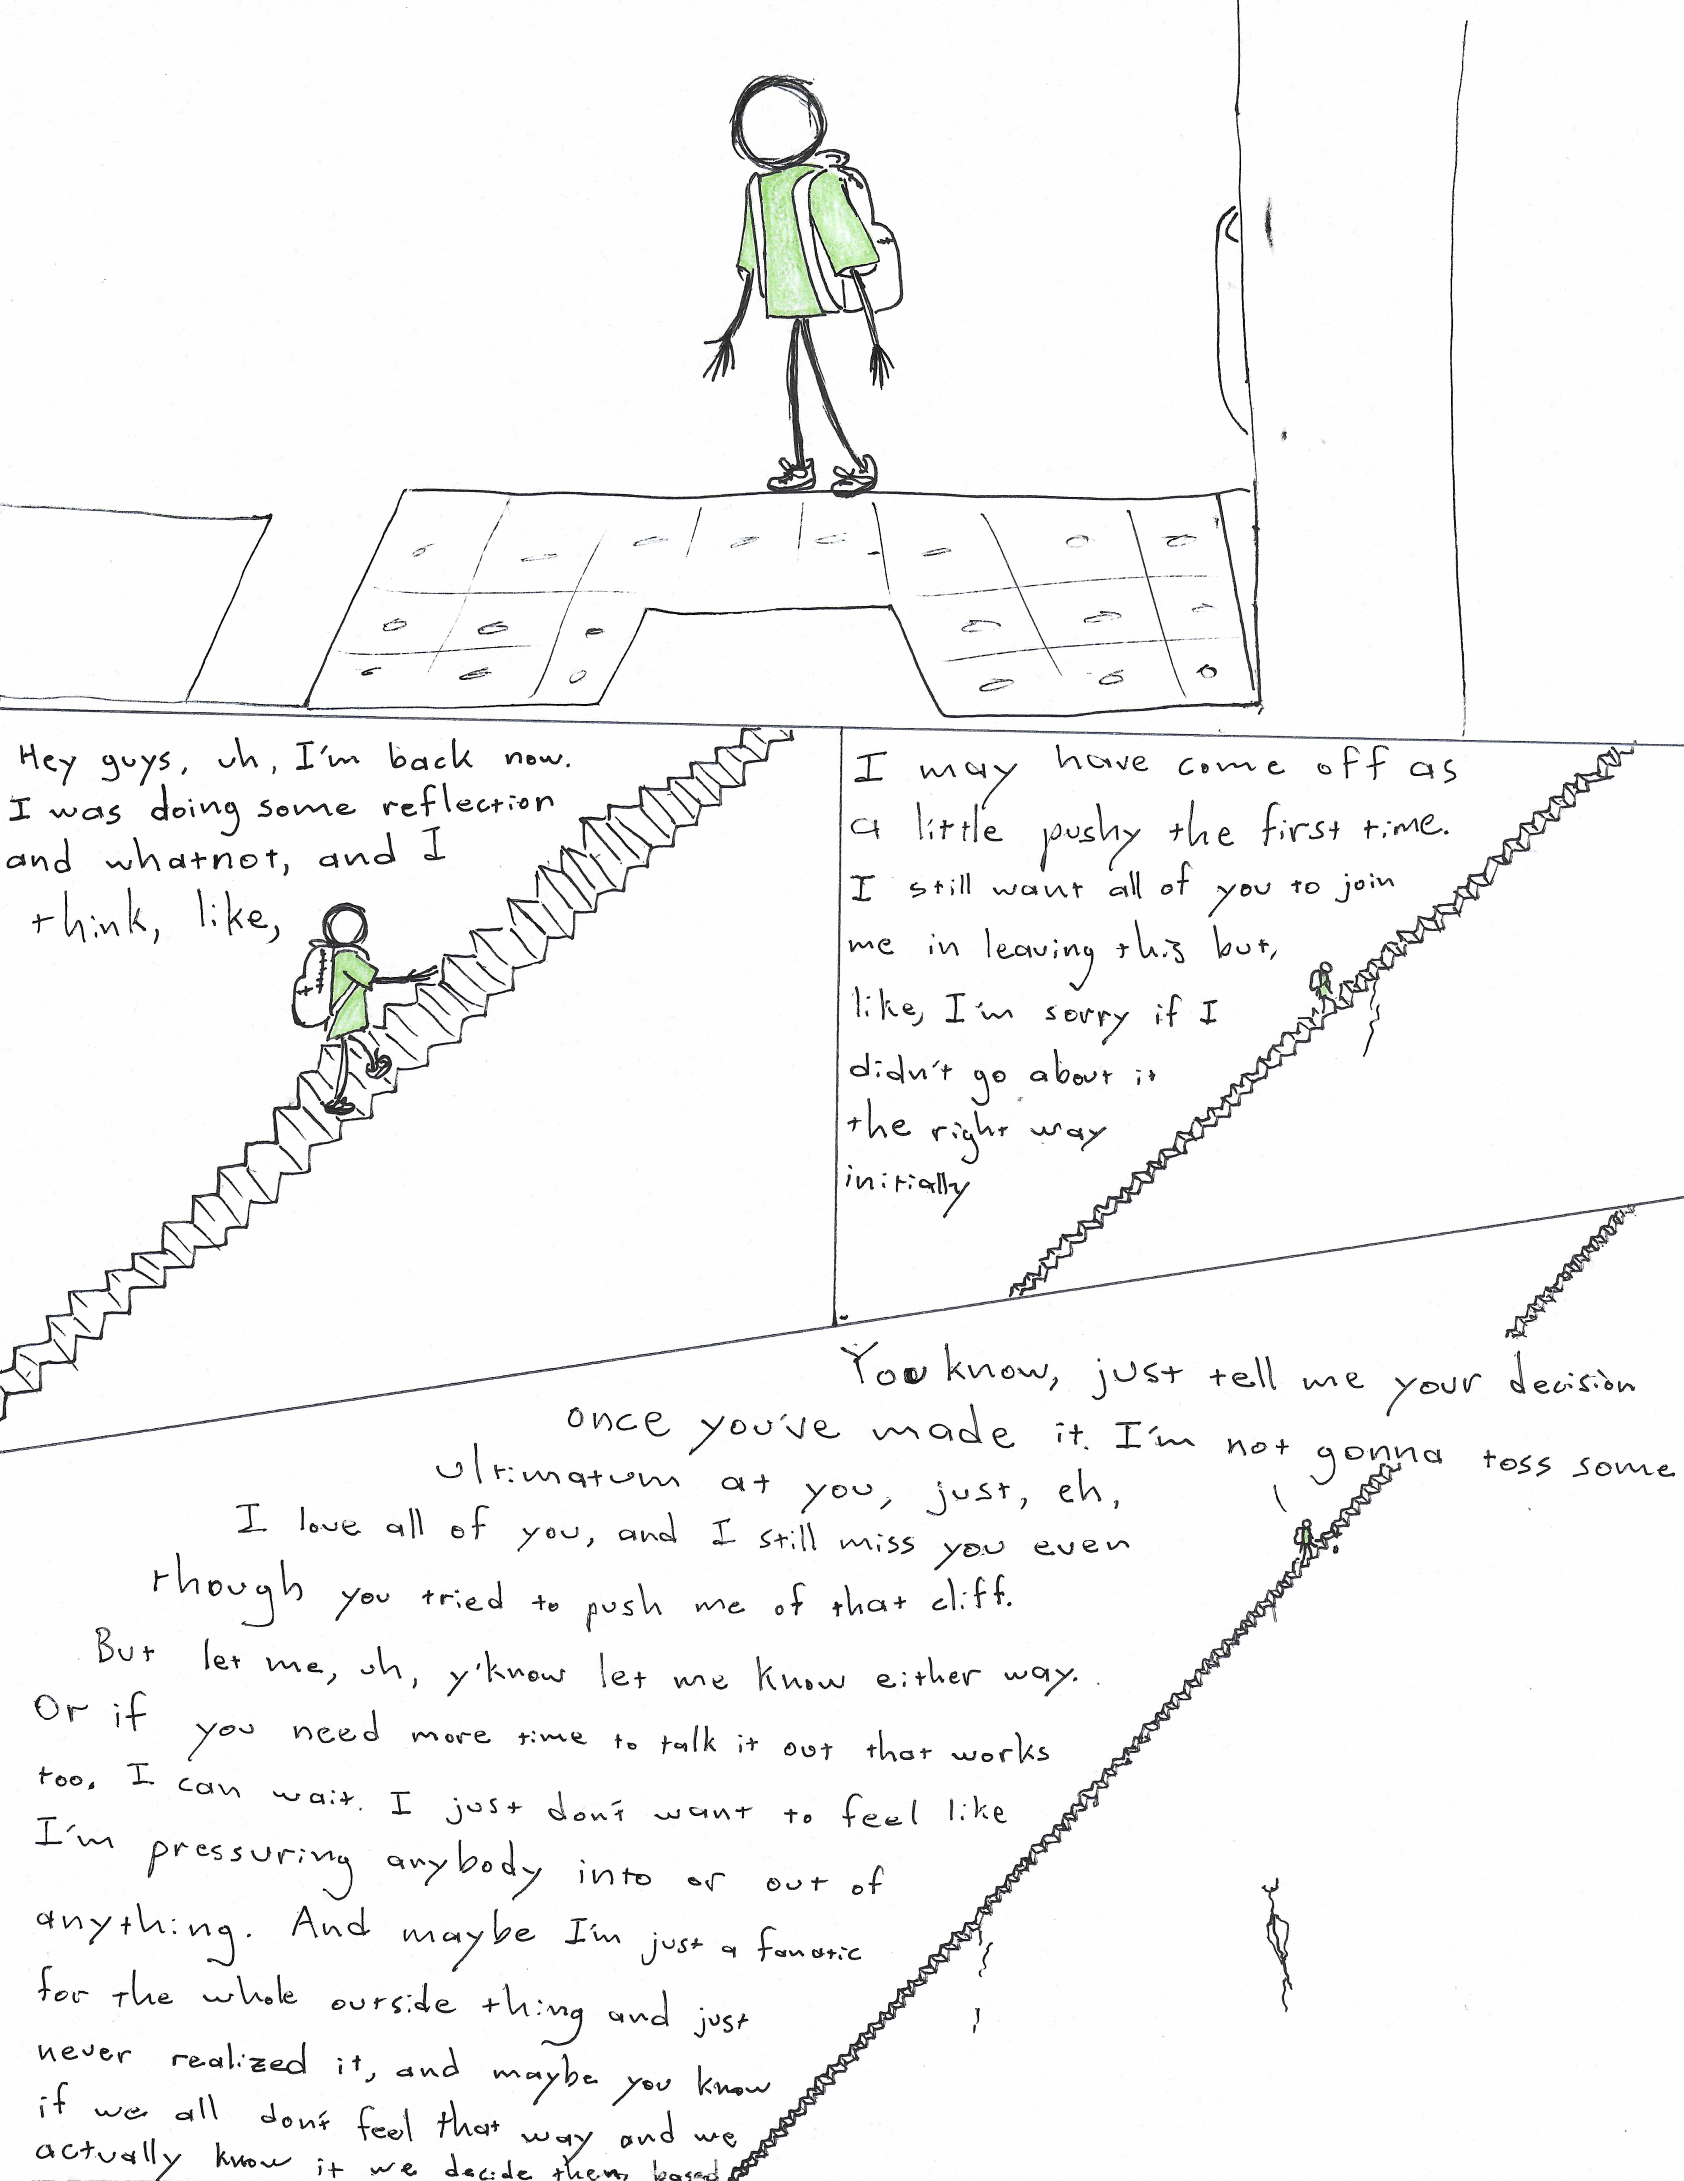 Hey guys, uh, I'm back now.
I was doing some reflection
and whatnot, and I
think, like,
I may have come off as
a little pushy the first time.
I still want all of you to join
me in leaving this but,
like, I'm sorry if I
didn't go about it
the right way
initially
You know, just tell me your decision
once you've made it. I'm not gonna toss some
ultimatum at you, just, eh,
I love all of you, and I still miss you even
though you tried to push me of that cliff.
But let me, uh, y'know let me know either way.
Or if you need more time to talk it out that works
too. I can wait. I just don't want to feel like
I'm pressuring anybody into or out of
anything. And maybe I'm just a fanatic
for the whole outside thing and just
never realized it, and maybe you know
if we all don't feel that way and we
actually know it we decide them based